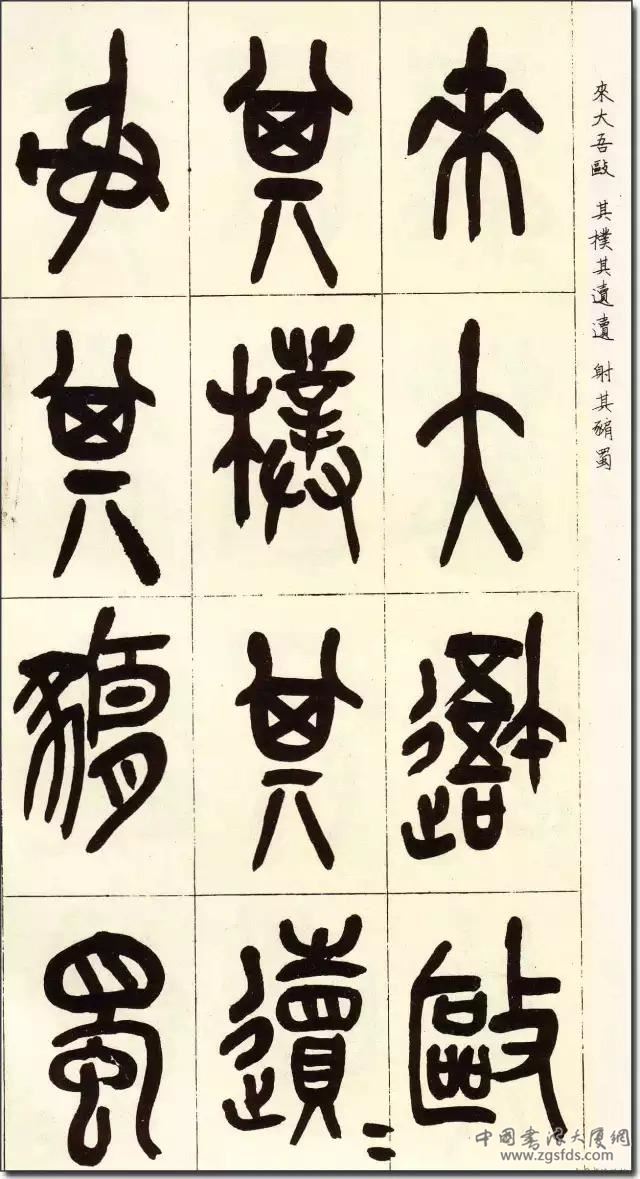 來大吾敺 其樸其遺遺 射其豜蜀
來大吾敺
其樸其遺=
射其豜蜀
中國書法大廈網
www.zgsfds.com